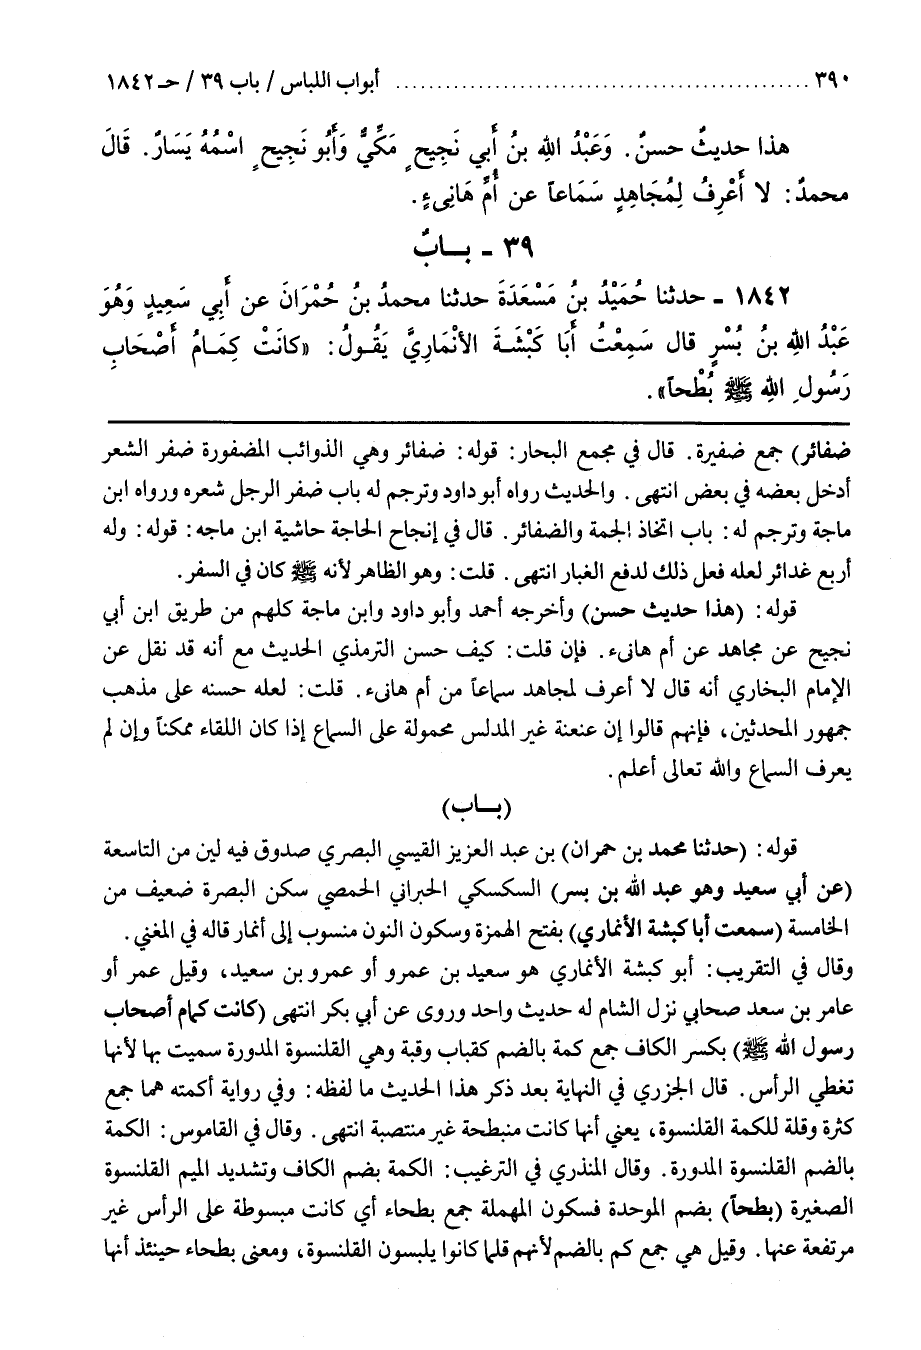 ٣٩٠ ........ أبواب اللباس / باب ٣٩ / حـ ١٨٤٢
هذا حديثٌ حسنٌ. وَعَبْدُ اللهِ بنُ أَبي نَجِيحٍ مَكِّيٌّ وَأَبُو نَجِيحٍ اسْمُهُ يَسَارٌ. قَالَ
محمدٌ: لا أَعْرِفُ لِمُجَاهِدٍ سَمَاعاً عن أُمِّ هَانِىءٍ.
٣٩ - بــابٌ
١٨٤٢ - حدثنا حُمَيْدُ بنُ مَسْعَدَةَ حدثنا محمدُ بنُ حُمْرَانَ عن أَبِي سَعِيدٍ وَهُوَ
عَبْدُ اللهِ بنُ بُسْرٍ قال سَمِعْتُ أَبَا كَبْشَةَ الأَنْمَارِيَّ يَقُولُ: «كانَتْ كِمَامُ أَصْحَابِ
رَسُولِ اللهِ ﷺ بُطْحاً».
ضفائر) جمع ضفيرة. قال في مجمع البحار: قوله: ضفائر وهي الذوائب المضفورة ضفر الشعر
أدخل بعضه في بعض انتهى. والحديث رواه أبو داود وترجم له باب ضفر الرجل شعره ورواه ابن
ماجة وترجم له: باب اتخاذ الجمة والضفائر. قال في إنجاح الحاجة حاشية ابن ماجه: قوله: وله
أربع غدائر لعله فعل ذلك لدفع الغبار انتهى. قلت: وهو الظاهر لأنه ﷺ كان في السفر.
قوله: (هذا حديث حسن) وأخرجه أحمد وأبو داود وابن ماجة كلهم من طريق ابن أبي
نجيح عن مجاهد عن أم هانىء. فإن قلت: كيف حسن الترمذي الحديث مع أنه قد نقل عن
الإمام البخاري أنه قال لا أعرف لمجاهد سماعاً من أم هانىء. قلت: لعله حسنه على مذهب
جمهور المحدثين، فإنهم قالوا إن عنعنة غير المدلس محمولة على السماع إذا كان اللقاء ممكناً وإن لم
يعرف السماع والله تعالى أعلم.
(بــاب)
قوله: (حدثنا محمد بن حمران) بن عبد العزيز القيسي البصري صدوق فيه لين من التاسعة
(عن أبي سعيد وهو عبد الله بن بسر) السكسكي الحبراني الحمصي سكن البصرة ضعيف من
الخامسة (سمعت أبا كبشة الأنماري) بفتح الهمزة وسكون النون منسوب إلى أنمار قاله في المغني.
وقال في التقريب: أبو كبشة الأنماري هو سعيد بن عمرو أو عمرو بن سعيد، وقيل عمر أو
عامر بن سعد صحابي نزل الشام له حديث واحد وروى عن أبي بكر انتهى (كانت كمام أصحاب
رسول الله ﷺ) بكسر الكاف جمع كمة بالضم كقباب وقبة وهي القلنسوة المدورة سميت بها لأنها
تغطي الرأس. قال الجزري في النهاية بعد ذكر هذا الحديث ما لفظه: وفي رواية أكمته هما جمع
كثرة وقلة للكمة القلنسوة، يعني أنها كانت منبطحة غير منتصبة انتهى. وقال في القاموس: الكمة
بالضم القلنسوة المدورة. وقال المنذري في الترغيب: الكمة بضم الكاف وتشديد الميم القلنسوة
الصغيرة (بطحاً) بضم الموحدة فسكون المهملة جمع بطحاء أي كانت مبسوطة على الرأس غير
مرتفعة عنها. وقيل هي جمع كم بالضم لأنهم قلما كانوا يلبسون القلنسوة، ومعنى بطحاء حينئذ أنها